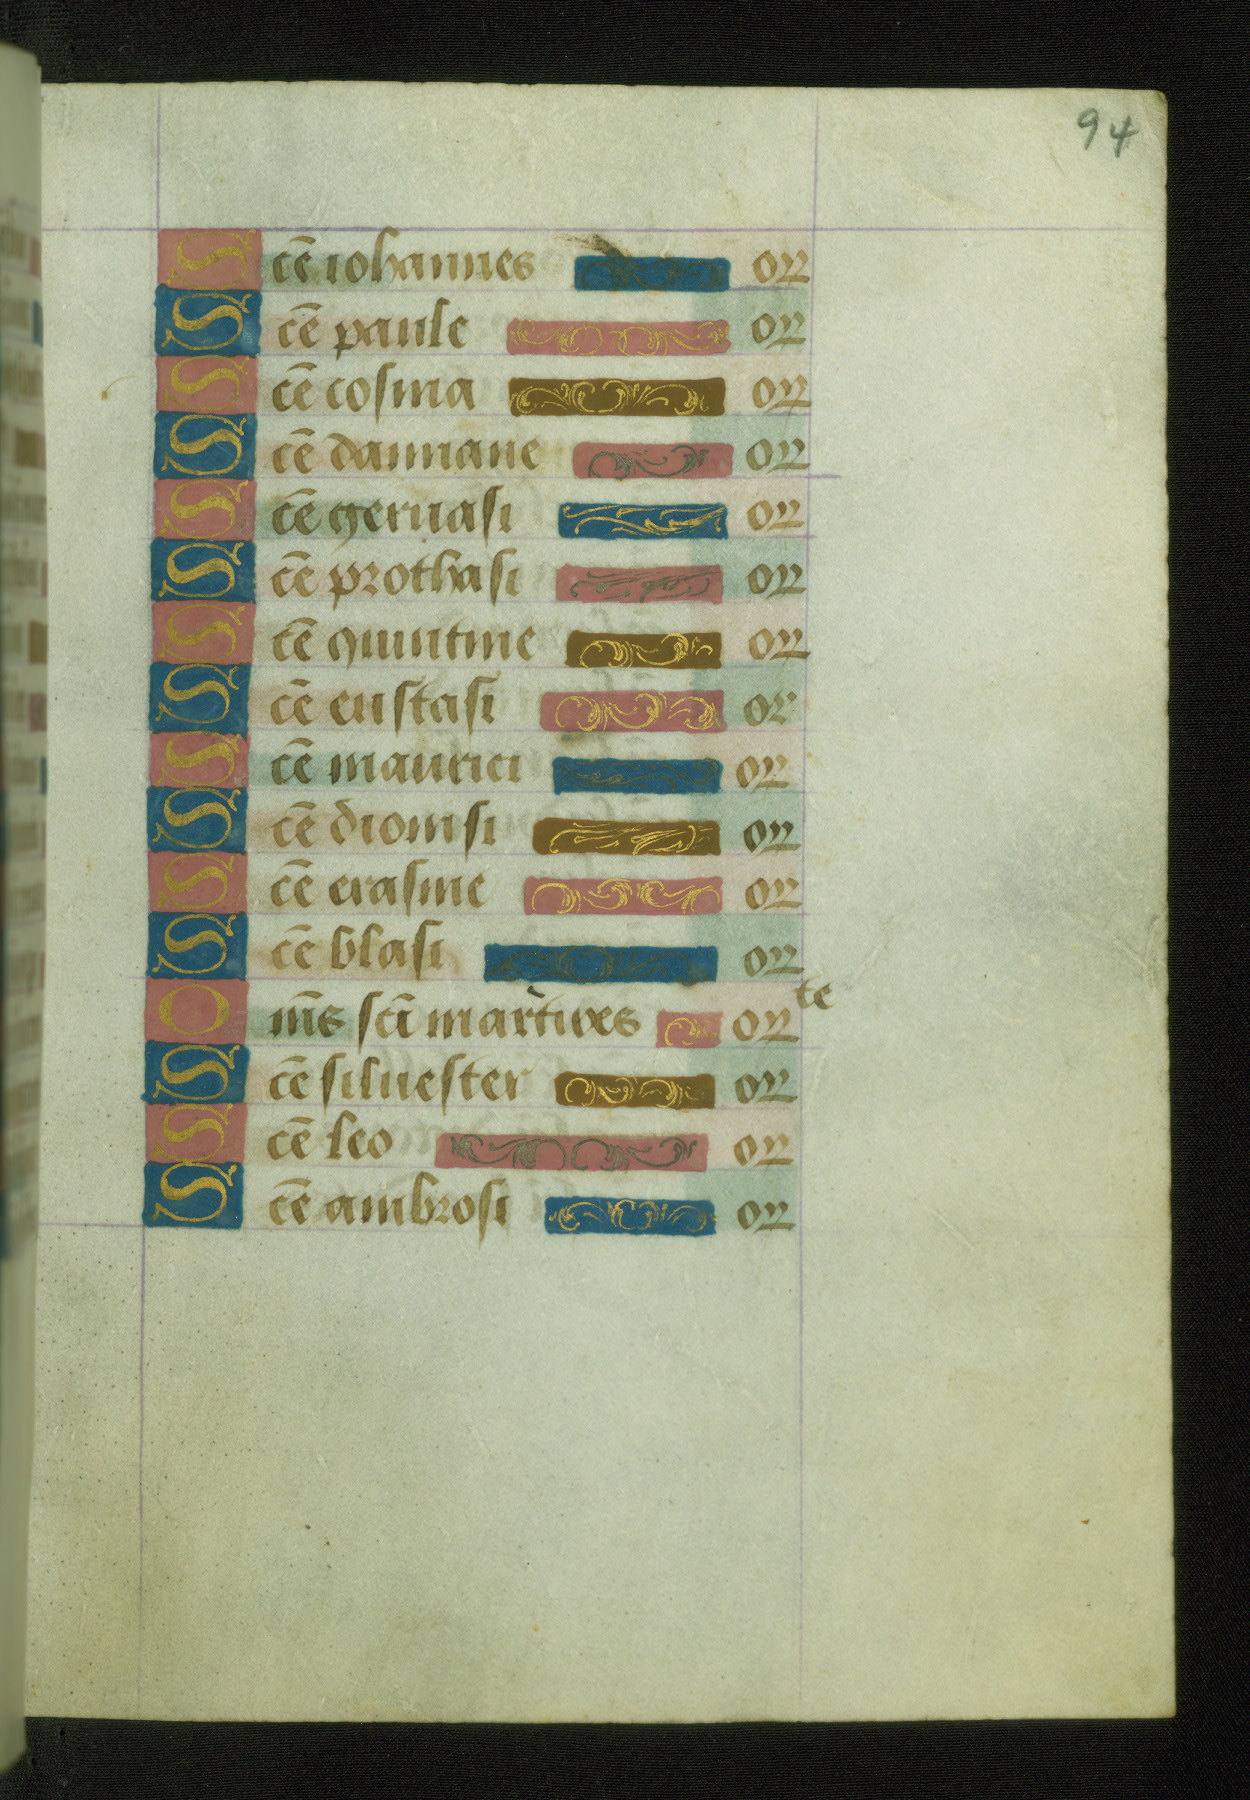 94
Scē iohannes or
Scē paule or
Scē cosma or
Scē damiane or
Scē geruasi or
Scē prothasi or
Scē quintine or
Scē eustasi or
Scē maurici or
Scē dionisi or
Scē erasme or
Scē blasi or
Om̄s sc̄i martires orte
Scē siluester or
Scē leo or
Scē ambrosi or